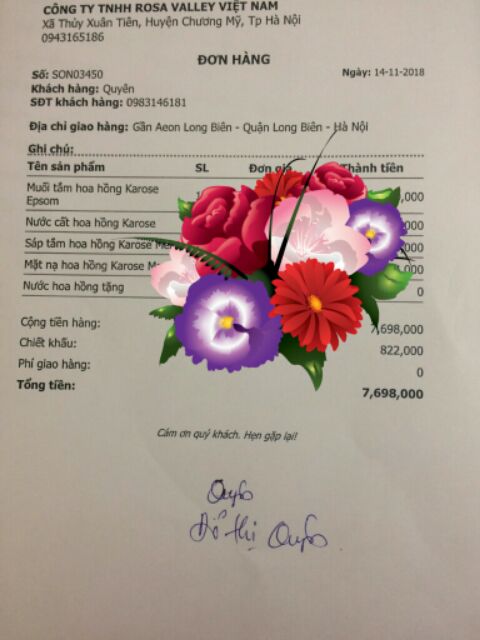 CÔNG TY TNHH ROSA VALLEY VIỆT NAM
Xã Thủy Xuân Tiên, Huyện Chương Mỹ, Tp Hà Nội
0943165186
ĐƠN HÀNG
Số: SON03450 Ngày: 14-11-2018
Khách hàng: Quyên
SĐT khách hàng: 0983146181
Địa chỉ giao hàng: Gần Aeon Long Biên - Quận Long Biên - Hà Nội
Ghi chú:
Tên sản phẩm SL Đơn giá Thành tiền
Muối tắm hoa hồng Karose ,000
Epsom
Nước cất hoa hồng Karose 000
Sáp tắm hoa hồng Karose 000
Mặt nạ hoa hồng Karose 000
Nước hoa hồng tặng 0
Cộng tiền hàng: 7,698,000
Chiết khấu: 822,000
Phí giao hàng: 0
Tổng tiền: 7,698,000
Cám ơn quý khách. Hẹn gặp lại!
Đỗ thị